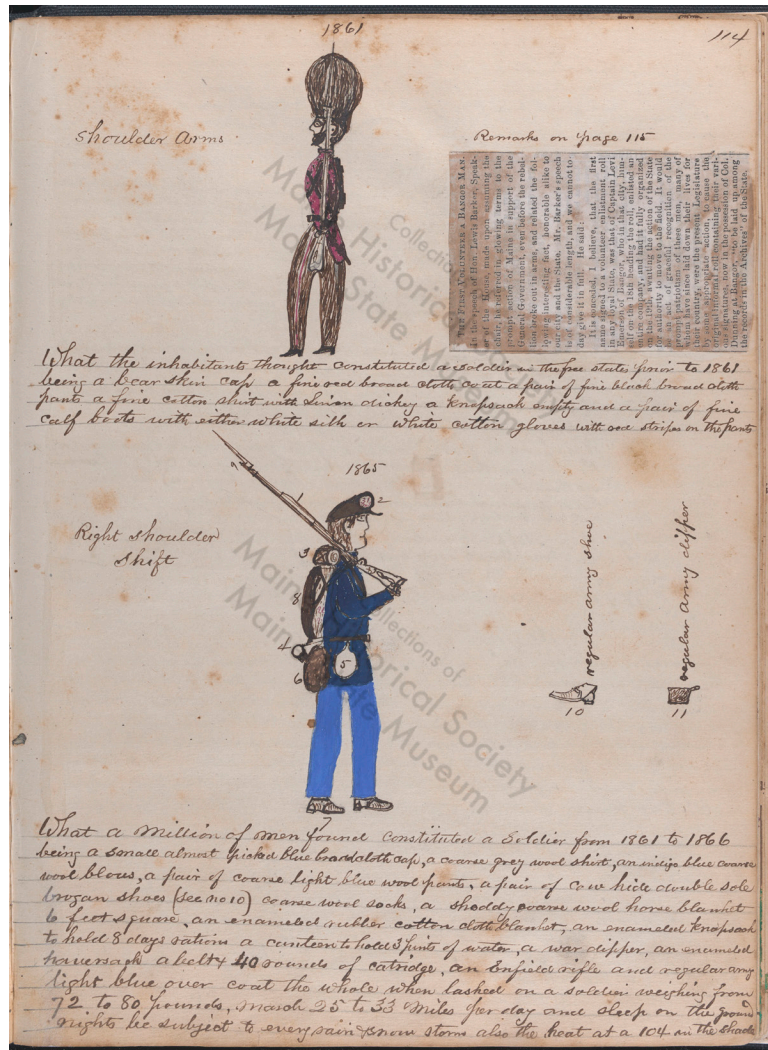 1861
114
Shoulder Arms
Remarks on page 115
THE FIRST VOLUNTEER A BANGOR MAN.
In the speech of Hon. Lewis Barker, Speak-
er of the House, made upon assuming the
chair, he referred in glowing terms to the
prompt action of Maine in support of the
General Government, even before the rebel-
lion broke out in arms, and related the fol-
lowing interesting fact, honorable alike to
our city and the State. Mr. Barker's speech
is of considerable length, and we cannot to-
day give it in full. He said:
It is conceded, I believe, that the first
name signed to a volunteer enlistment roll
in any loyal State, was that of Captain Levi
Emerson of Bangor, who in that city, him-
self on the 18th heading the roll, enlisted an
entire company, and had it fully organized
on the 19th, awaiting the action of the State
authority to move to the field. It would
be an act of graceful recognition of the
prompt patriotism of these men, many of
whom have since laid down their lives for
their country, were the present Legislature
by some appropriate action, to cause the
original informal roll containing their vari-
ous signatures, now in the possession of Col.
Dunning at Bangor, "to be laid up among
the records in the Archives" of the State.
What the inhabitants thought constituted a soldier in the free states prior to 1861
being a bear skin cap a fine red broad cloth coat a pair of fine black broad cloth
pants a fine cotton shirt with linen dickey a Knapsack empty and a pair of fine
calf boots with either white silk or white cotton gloves with red stripes on the pants
1865
Right shoulder
shift
9
1
2
3
8
4
5
6
7
regular army shoe
10
regular army dipper
11
What a million of men found constituted a Soldier from 1861 to 1866
being a small almost picked blue broadcloth cap, a coarse grey wool shirt, an indigo blue coarse
wool blous, a pair of coarse light blue wool pants, a pair of cow hide double sole
brogan shoes (see no 10) coarse wool socks, a shoddy coarse wool horse blanket
6 feet square, an enameled rubber cotton cloth blanket, an enameled Knapsack
to hold 8 days rations a canteen to hold 3 pints of water, a war dipper, an enameled
haversack a belt & 40 rounds of catridge, an Enfield rifle and regular army
light blue over coat the whole when lashed on a soldier weighing from
72 to 80 pounds, march 25 to 33 miles per day and sleep on the groun
nights be subject to every rain & snow storm also the heat at a 104 in the shade
Collections of
Maine Historical Society
Maine State Museum
Collections of
Maine Historical Society
Maine State Museum